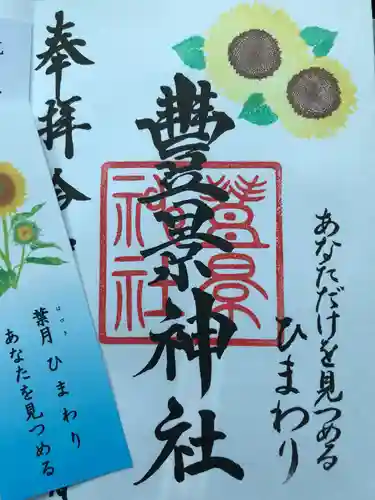 あなただけを見つめる
ひまわり
豐景神社
豊景神社
奉拝
葉月 ひまわり
あなたを見つめる